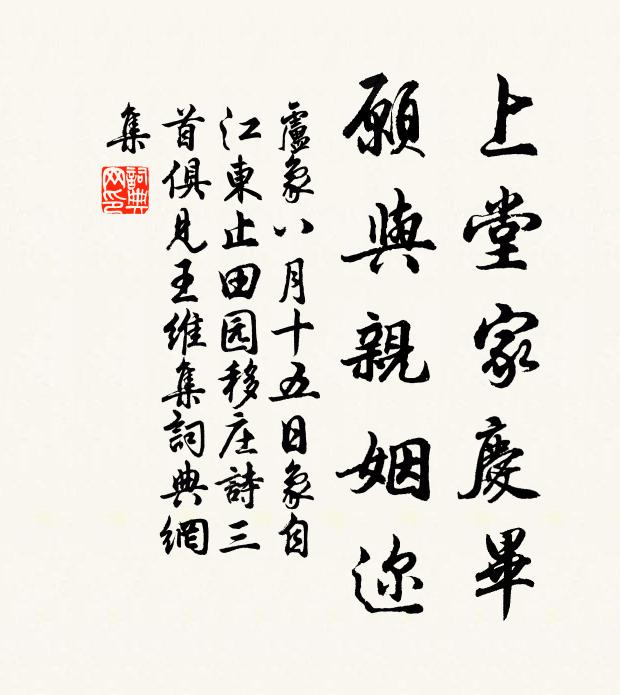 上堂家慶畢
願與親姻迩
盧象八月十五日象自
江東止田园移庄詩三
首俱見王維集詞典網
集
詞典
网印